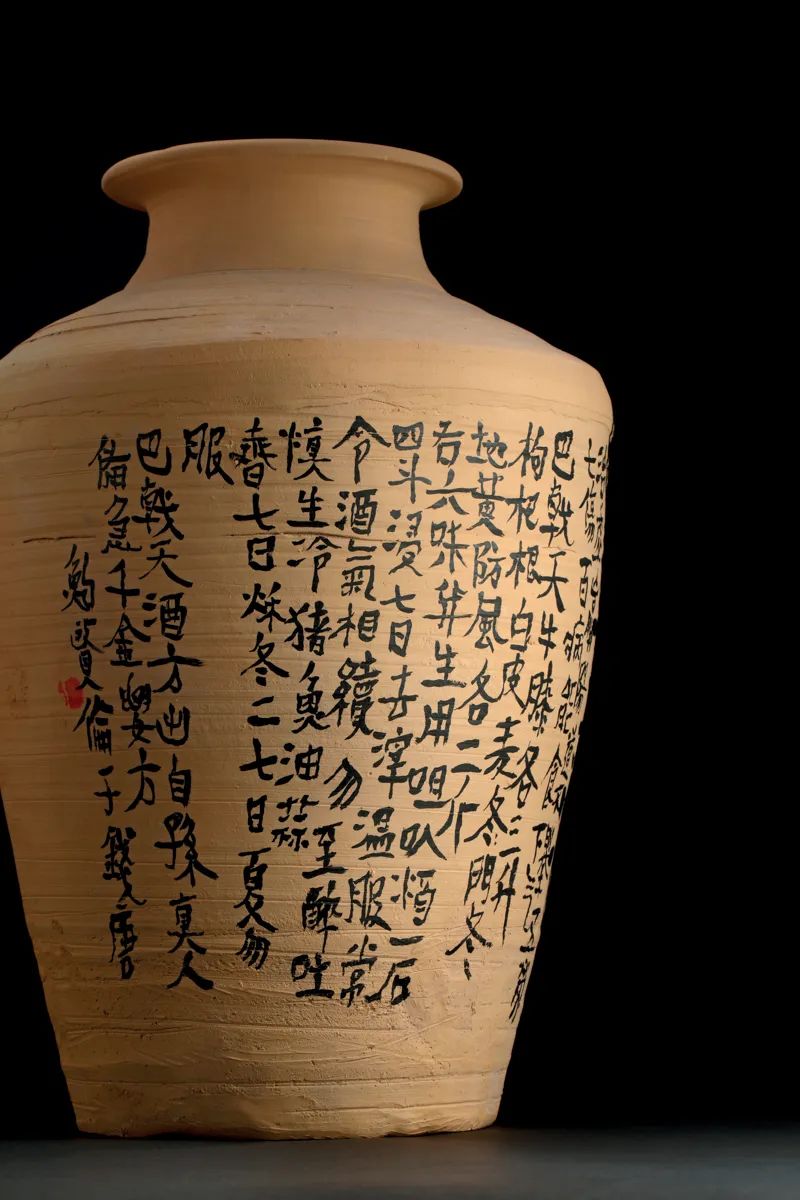 七傷百病能食下
巴戟天牛膝各三升
枸杞根白皮麦冬門冬
地黄防風各二斤
右六味并生用咀㕮酒一石
四斗浸七日去滓温服常
令酒氣相續勿至醉吐
慎生冷猪魚油蒜
春七日秋冬二七日夏勿
服
巴戟天酒方出自孫真人
備急千金要方
鮑賢倫于錢唐